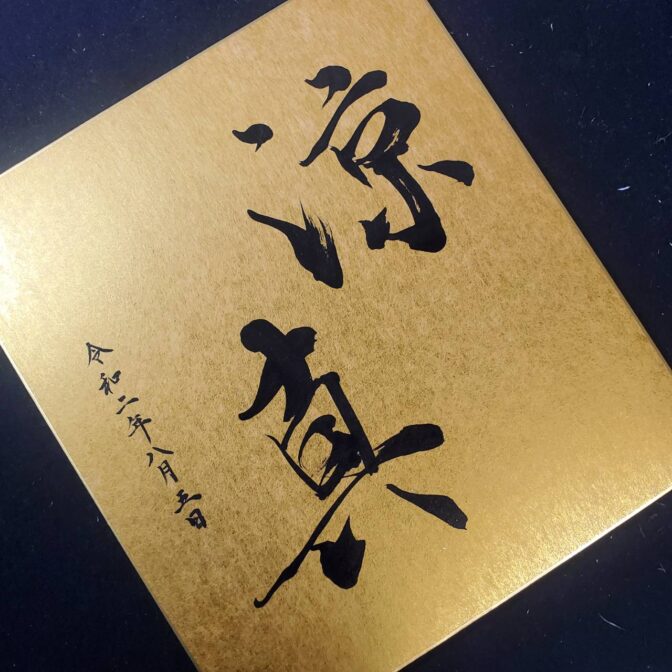 涼真
令和二年八月五日